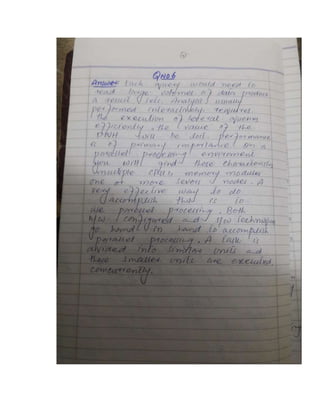 Qno6
Answer: Each query would need to
read large volumes of data produce
a result sets. Analysis usually
performed interactively requires
the execution of several queries
efficiently, the value of the
DWH tool to data performance
is of primary importance. In a
parallel processing environment
you will find these characteristics
multiple CPUs, memory modules
one or more server nodes. A
very effective way to do
accomplish this is to
use parallel processing. Both
H/W configured and S/W techniques
go hand in hand to accomplish
parallel processing. A task is
divided into smaller units and
these smaller units are executed
concurrently.